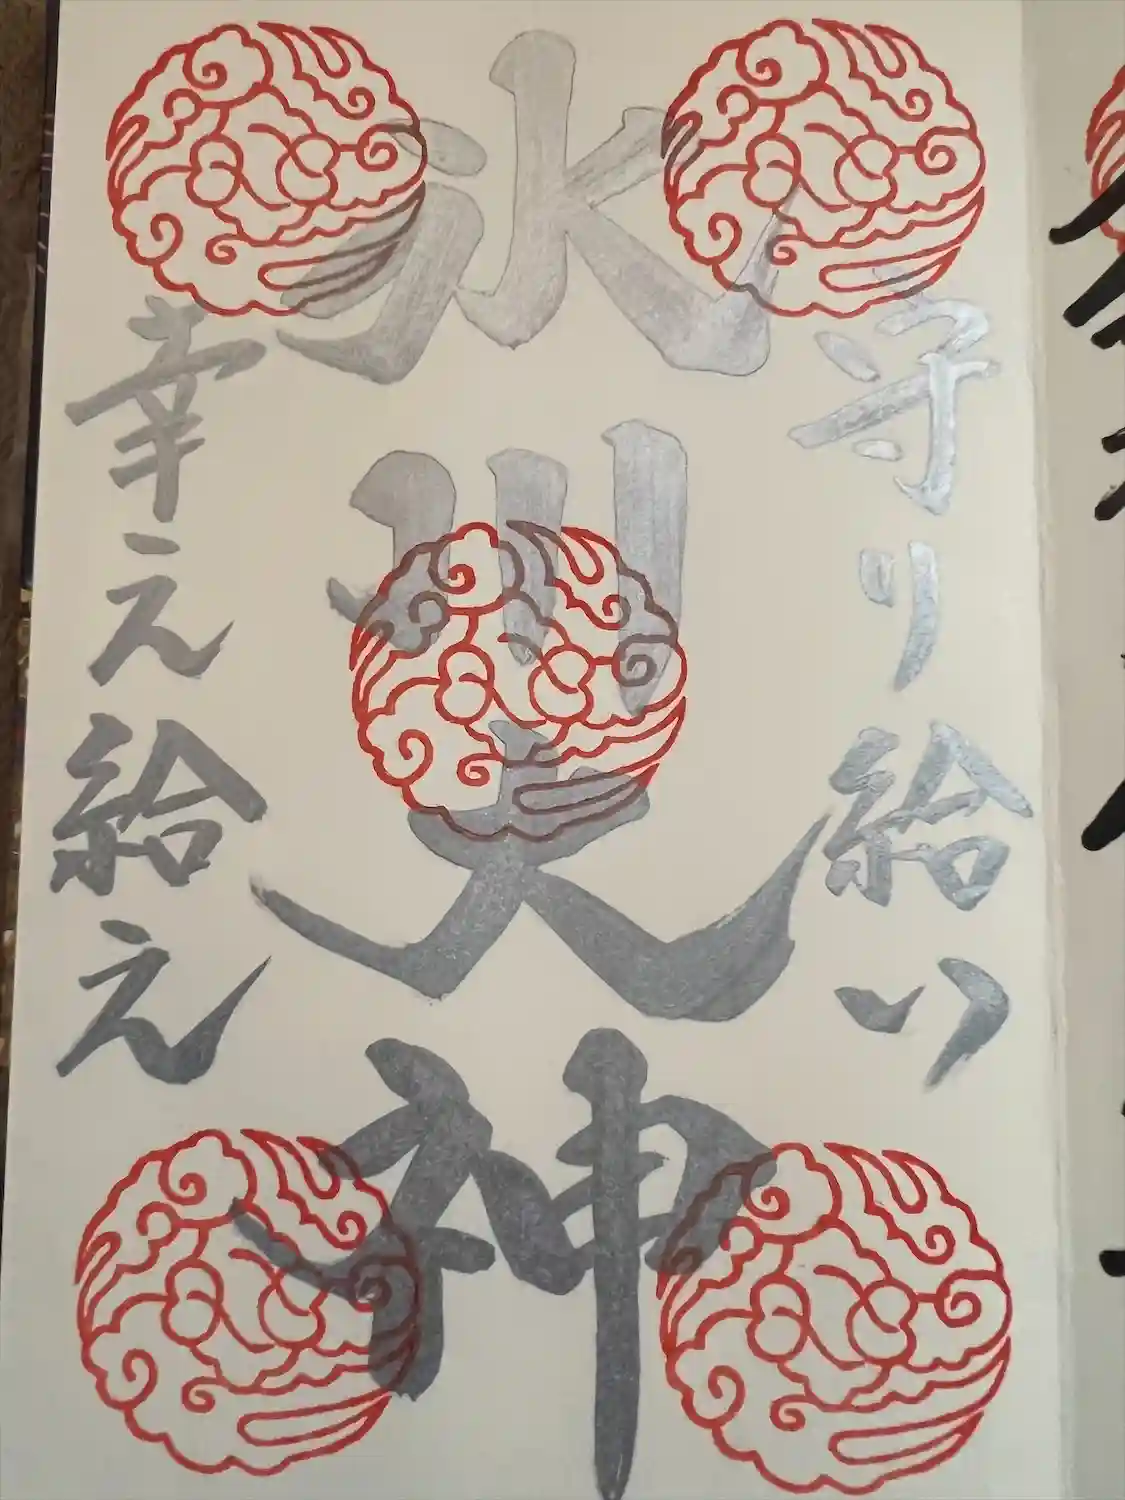 守り給い
氷川大神
幸え給え